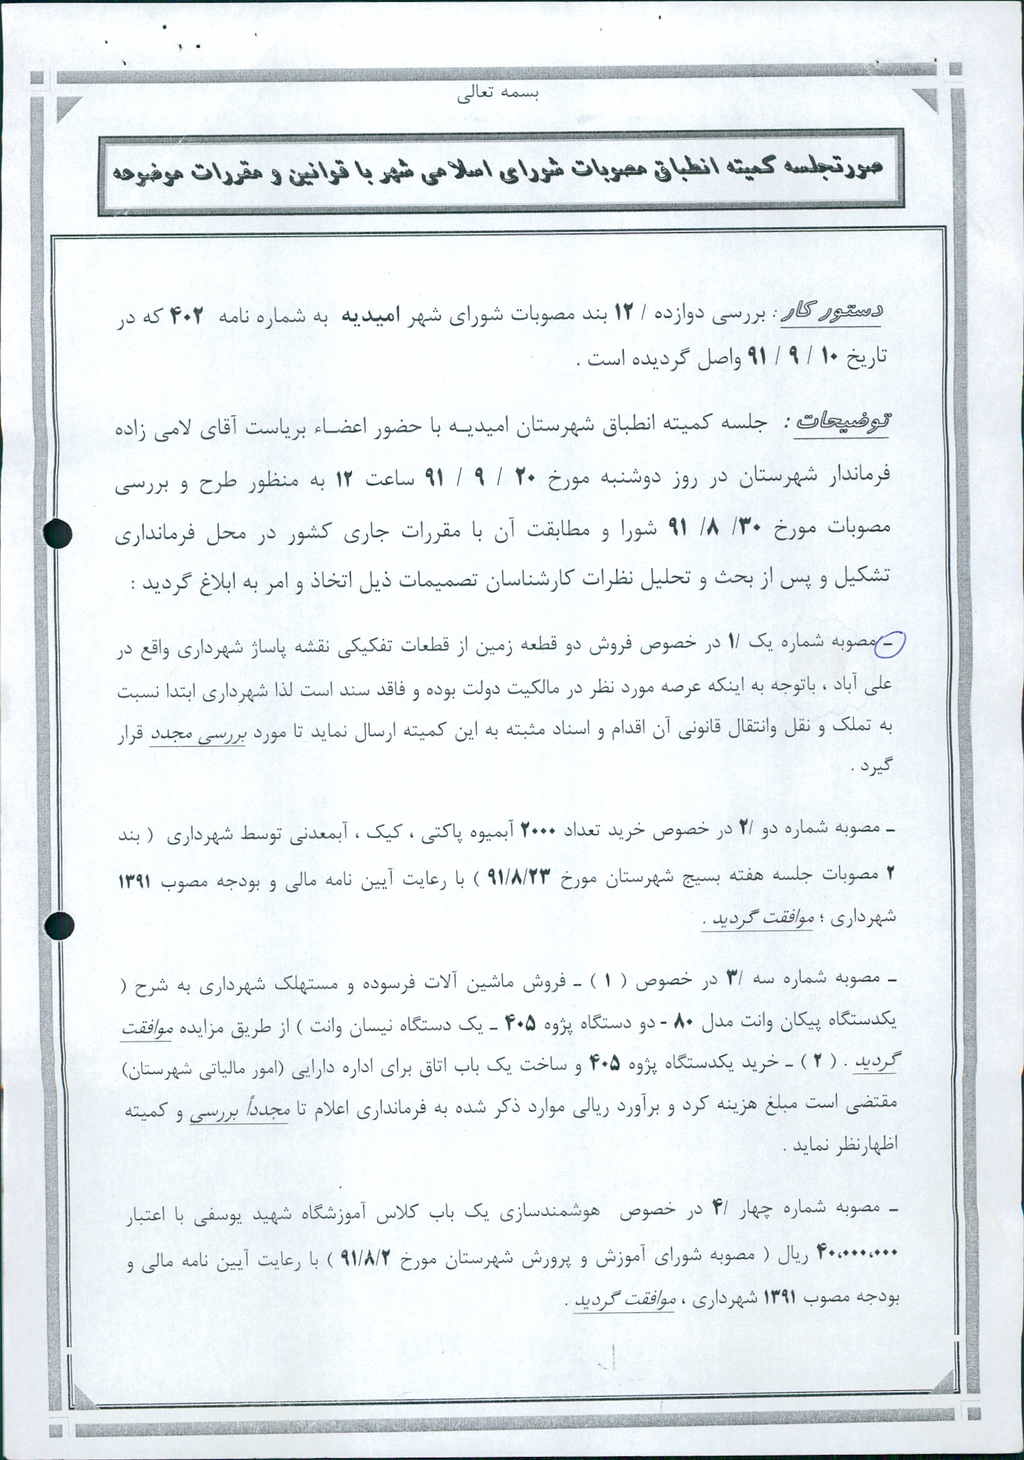 بسمه تعالی
صورتجلسه کمیته انطباق مصوبات شورای اسلامی شهر با قوانین و مقررات موضوعه
دستور کار : بررسی دوازده / ۱۲ بند مصوبات شورای شهر امیدیه به شماره نامه ۴۰۲ که در
تاریخ ۱۰ / ۹ / ۹۱ واصل گردیده است .
توضیحات : جلسه کمیته انطباق شهرستان امیدیـه با حضور اعضـاء بریاست آقای لامی زاده
فرماندار شهرستان در روز دوشنبه مورخ ۲۰ / ۹ / ۹۱ ساعت ۱۲ به منظور طرح و بررسی
مصوبات مورخ ۳۰/ ۸/ ۹۱ شورا و مطابقت آن با مقررات جاری کشور در محل فرمانداری
تشکیل و پس از بحث و تحلیل نظرات کارشناسان تصمیمات ذیل اتخاذ و امر به ابلاغ گردید :
ـ مصوبه شماره یک /۱ در خصوص فروش دو قطعه زمین از قطعات تفکیکی نقشه پاساژ شهرداری واقع در
علی آباد ، باتوجه به اینکه عرصه مورد نظر در مالکیت دولت بوده و فاقد سند است لذا شهرداری ابتدا نسبت
به تملک و نقل وانتقال قانونی آن اقدام و اسناد مثبته به این کمیته ارسال نماید تا مورد بررسی مجدد قرار
گیرد .
ـ مصوبه شماره دو /۲ در خصوص خرید تعداد ۲۰۰۰ آبمیوه پاکتی ، کیک ، آبمعدنی توسط شهرداری ( بند
۲ مصوبات جلسه هفته بسیج شهرستان مورخ ۹۱/۸/۲۳ ) با رعایت آیین نامه مالی و بودجه مصوب ۱۳۹۱
شهرداری ؛ موافقت گردید .
ـ مصوبه شماره سه /۳ در خصوص ( ۱ ) ـ فروش ماشین آلات فرسوده و مستهلک شهرداری به شرح (
یکدستگاه پیکان وانت مدل ۸۰ - دو دستگاه پژوه ۴۰۵ ـ یک دستگاه نیسان وانت ) از طریق مزایده موافقت
گردید . ( ۲ ) ـ خرید یکدستگاه پژوه ۴۰۵ و ساخت یک باب اتاق برای اداره دارایی (امور مالیاتی شهرستان)
مقتضی است مبلغ هزینه کرد و برآورد ریالی موارد ذکر شده به فرمانداری اعلام تا مجدداً بررسی و کمیته
اظهارنظر نماید .
ـ مصوبه شماره چهار /۴ در خصوص هوشمندسازی یک باب کلاس آموزشگاه شهید یوسفی با اعتبار
۴۰،۰۰۰،۰۰۰ ریال ( مصوبه شورای آموزش و پرورش شهرستان مورخ ۹۱/۸/۲ ) با رعایت آیین نامه مالی و
بودجه مصوب ۱۳۹۱ شهرداری ، موافقت گردید .